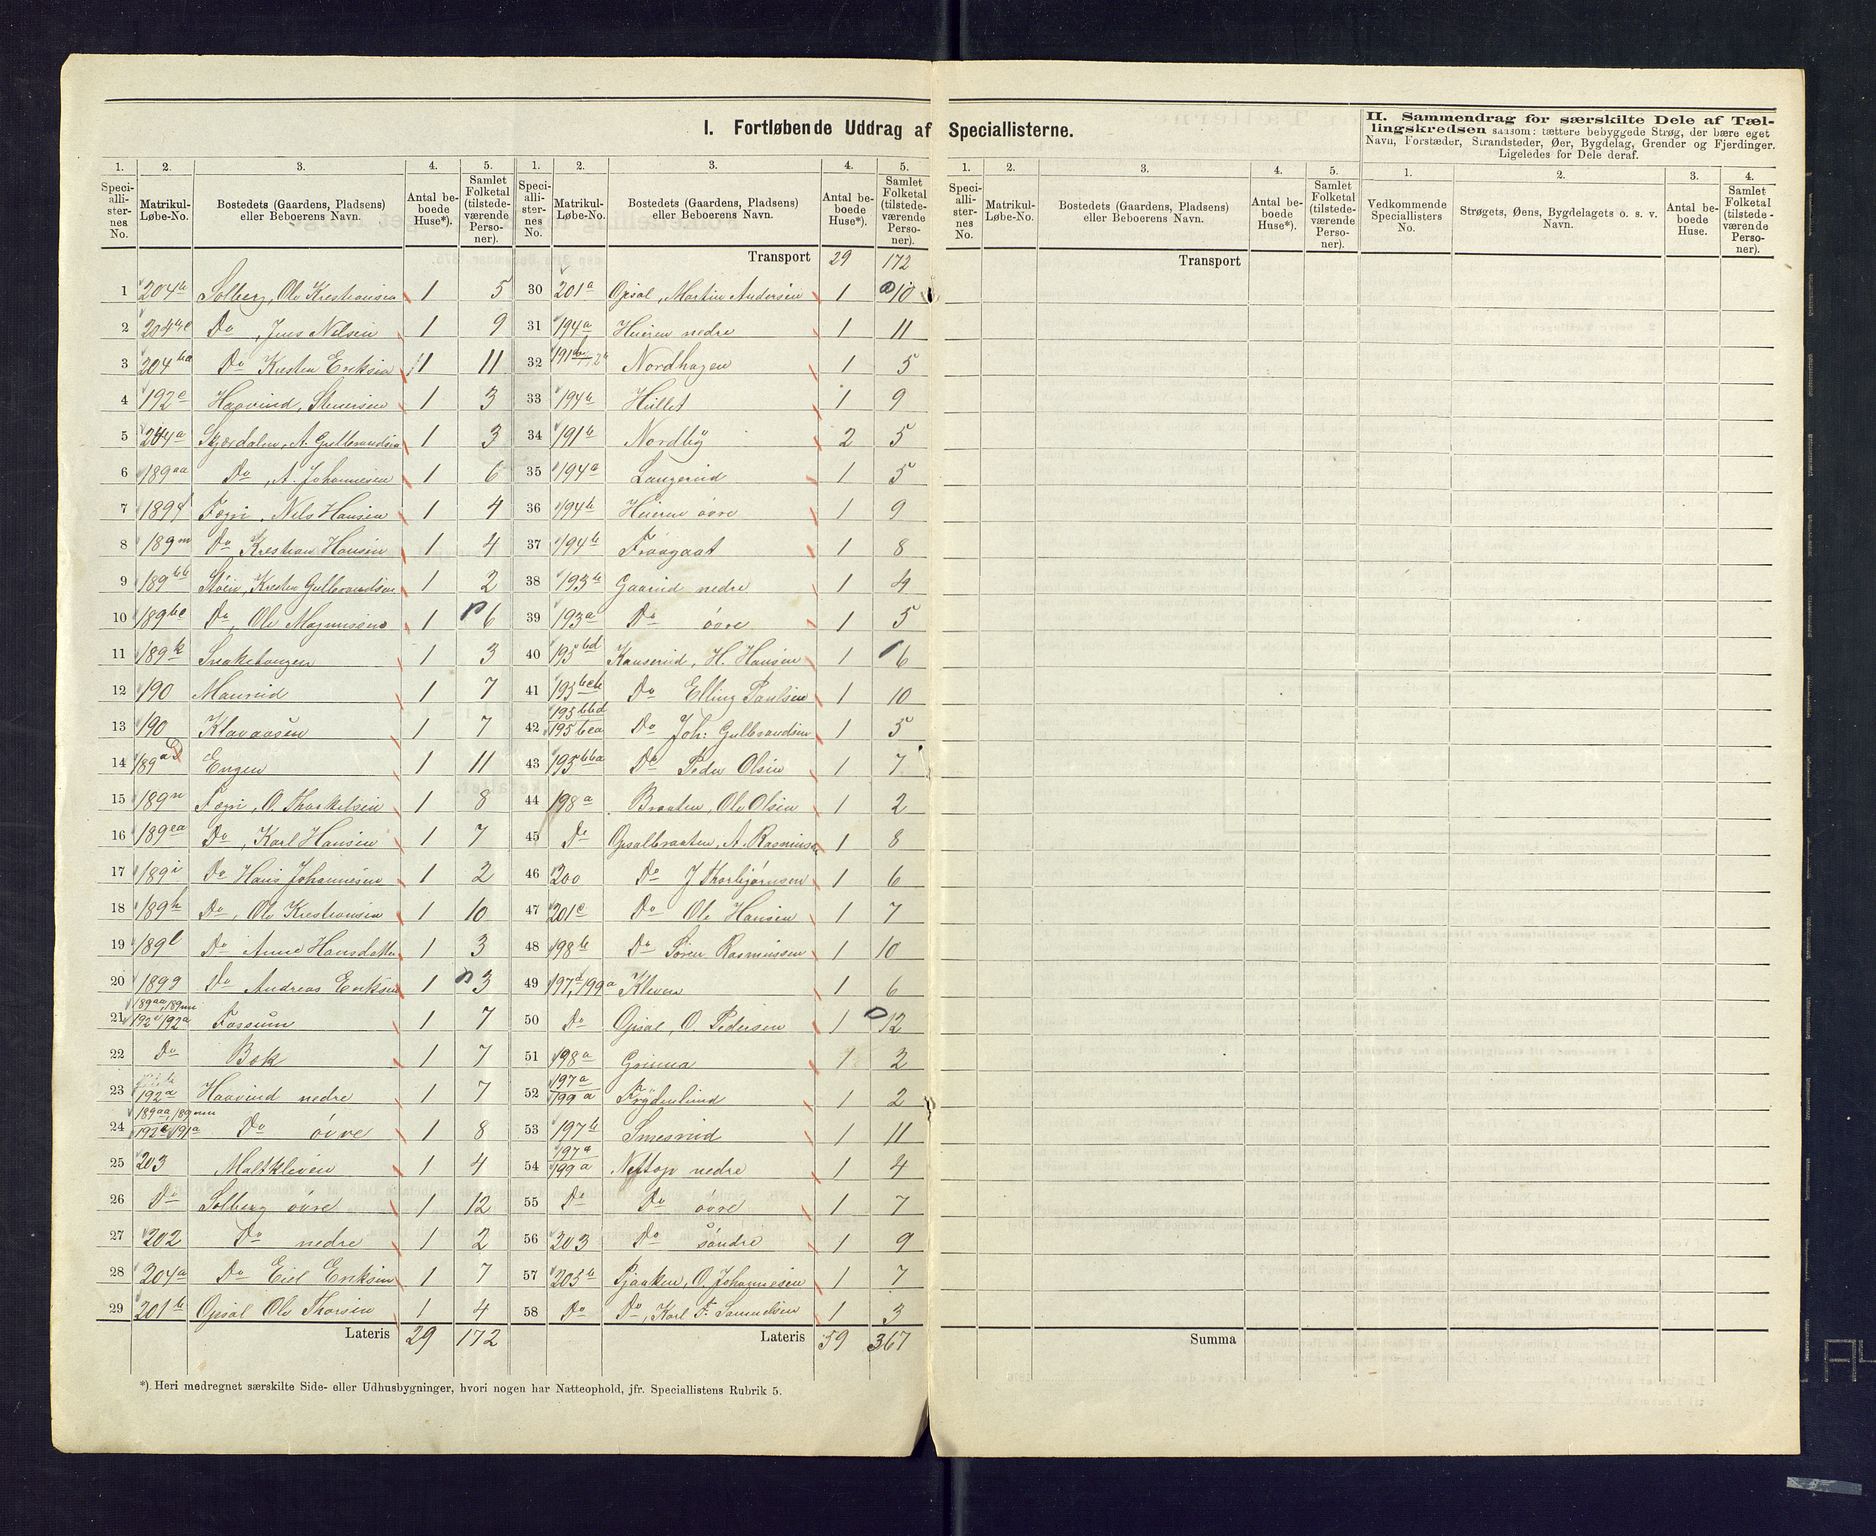 I. Fortløbende Uddrag af Speciallisterne.
II. Sammendrag for særskilte Dele af Tæl-
lingskredsen saasom: tættere bebyggede Strøg, der bære eget
Navn, Forstæder, Strandsteder, Øer, Bygdelag, Grender og Fjerdinger.
Ligeledes for Dele deraf.
1. 2. 3. 4. 5. 1. 2. 3. 4. 5. 1. 2. 3. 4. 5. 1. 2. 3. 4.
Speci-alli-ster-nes No. Matrikul-Løbe-No. Bostedets (Gaardens, Pladsens) eller Beboerens Navn. Antal be-boede Huse*). Samlet Folketal (tilstede-værende Perso-ner).
Speci-alli-ster-nes No. Matrikul-Løbe-No. Bostedets (Gaardens, Pladsens) eller Beboerens Navn. Antal be-boede Huse*). Samlet Folketal (tilstede-værende Perso-ner).
Speci-alli-ster-nes No. Matrikul-Løbe-No. Bostedets (Gaardens, Pladsens) eller Beboerens Navn. Antal be-boede Huse*). Samlet Folketal (tilstede-værende Perso-ner).
Vedkommende Speciallisters No. Strøgets, Øens, Bygdelagets o. s. v. Navn. Antal be-boede Huse. Samlet Folketal (tilstede-værende Perso-ner).
1 204b Solberg, Ole Kristiansen 1 5
2 204 Do, Jens Nelsen 1 9
3 204ba Do Kresten Eriksen 1 11
4 192c Haavind, Steneren 1 3
5 204a Skjærdalen, A. Gulbrandsen 1 3
6 189aa Do, A. Johannesen 1 6
7 189f Fægri, Nels Hansen 1 4
8 189m Do Krestian Hansen 1 4
9 189bb Støen, Kresten Gulbrandsen 1 2
10 189bc Do, Ole Magnusen 1 6
11 189k Snaketangen 1 3
12 190 Maurud 1 7
13 190 Klavaasen 1 7
14 189ad Engen 1 11
15 189n Fægri, O. Thorkelsen 1 8
16 189ea Do, Karl Hansen 1 7
17 189i Do Hans Johannesen 1 2
18 189h Do, Ole Krestiansen 1 10
19 189l Do Anne Hansdatter 1 3
20 189g Do Andreas Eriksen 1 3
21 189aa, 189mm 192c 192a Fossum 1 7
22 Do Bæk 1 7
23 192a Haavind nedre 1 7
24 189aa, 189mm 192c 191a Do övre 1 8
25 203 Maltkleven 1 4
26 Do Solberg övre 1 12
27 202 Do nedre 1 2
28 204a Do Eiel Eriksen 1 7
29 201b Opsal Ole Thorsen 1 4
Lateris 29 172
Transport 29 172
30 201a Opsal, Martin Andersen 1 10
31 194a Heieren nedre 1 11
32 191 Nordhagen 1 5
33 194b Hullet 1 9
34 191b Nordby 2 5
35 194a Langerud 1 5
36 194b Heieren övre 1 9
37 194b Fraagaat 1 8
38 193b Gaarud nedre 1 4
39 193a Do övre 1 5
40 195bd Kanserud, H. Hansen 1 6
41 195bcb Do Elling Paulsen 1 10
42 195bbd 195bca Do Joh. Gulbrandsen 1 5
43 195bba Do Peder Olsen 1 7
44 198a Braaten, Ole Olsen 1 2
45 Do Opsalbraaten, A. Rasmussen 1 8
46 200 Do J Thorbjørnsen 1 6
47 201c Do Ole Hansen 1 7
48 198b Do Sören Rasmussen 1 10
49 197d, 199a Kleven 1 6
50 Do Opsal, O. Pedersen 1 12
51 198a Grinna 1 2
52 197a 199a Frydenlund 1 2
53 197b Smesrud 1 11
54 197a 199a Neftop nedre 1 4
55 Do Do övre 1 7
56 203 Do söndre 1 9
57 205b Pjaaken, O. Johannesen 1 7
58 Do Do, Karl F. Samuelsen 1 3
Lateris 59 367
Transport
Summa
*) Heri medregnet særskilte Side- eller Udhusbygninger, hvori nogen har Natteophold, jfr. Speciallistens Rubrik 5.